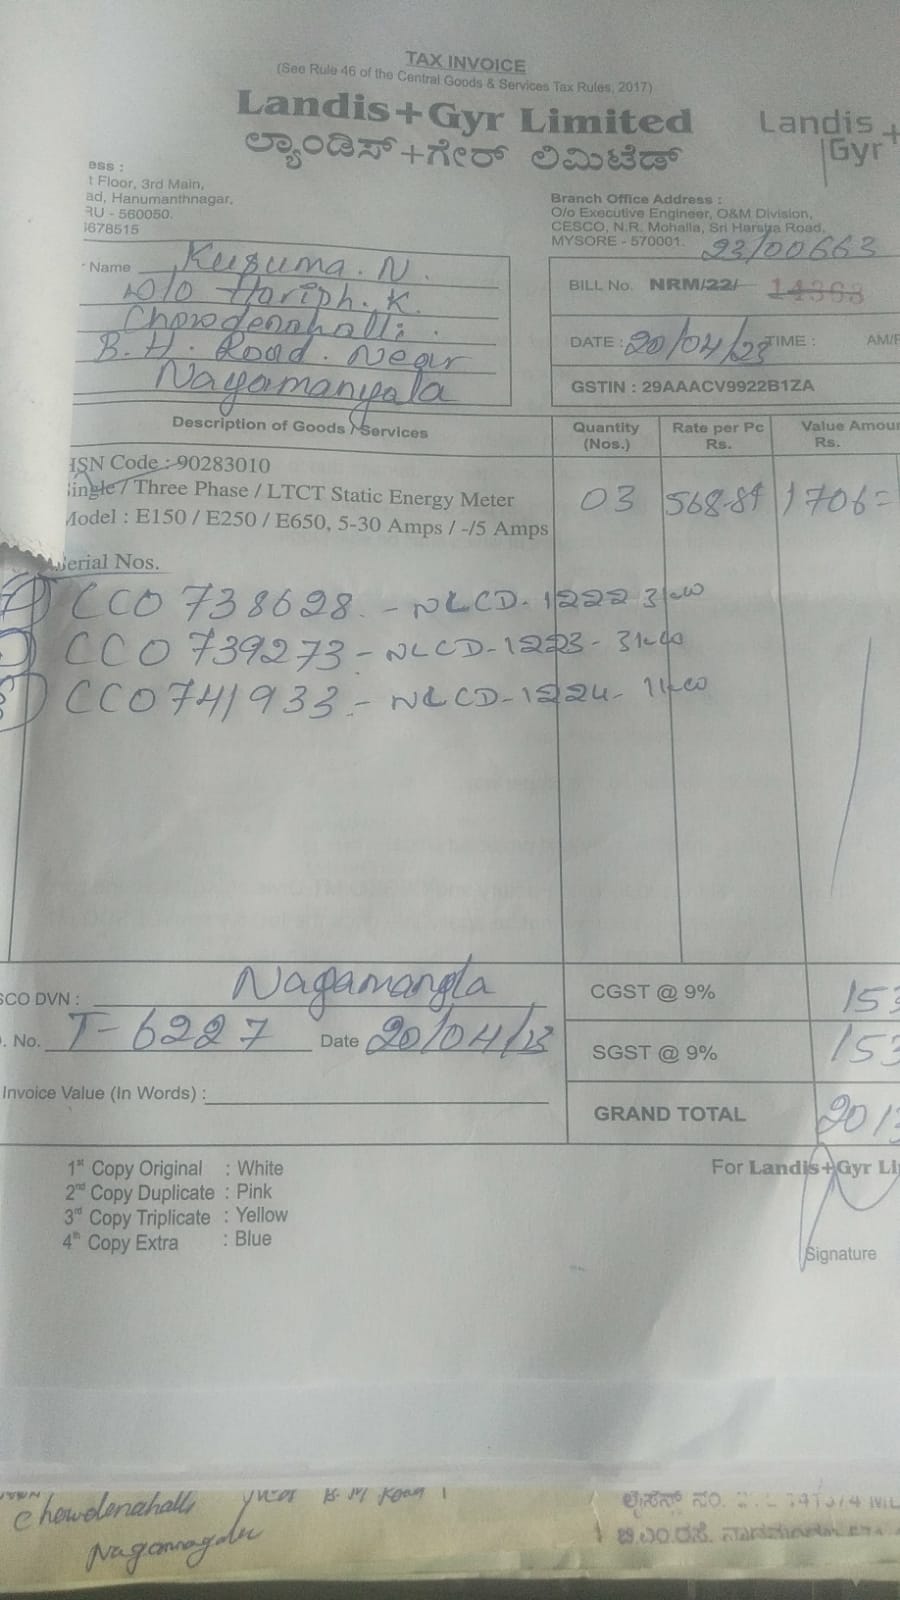 TAX INVOICE
(See Rule 46 of the Central Goods & Services Tax Rules, 2017)
Landis+Gyr Limited
ಲ್ಯಾಂಡಿಸ್+ಗೇರ್ ಲಿಮಿಟೆಡ್
Landis+
Gyr
ess :
t Floor, 3rd Main,
ad, Hanumanthnagar,
RU - 560050.
678515
Branch Office Address :
O/o Executive Engineer, O&M Division,
CESCO, N.R. Mohalla, Sri Harsha Road,
MYSORE - 570001.
23/00663
Name Kusuma. N.
W/o Harish. K.
Chowdenahalli.
B.H. Road. Near
Nagamangala
BILL No. NRM/22/ 14363
DATE : 20/04/23 TIME : AM/P
GSTIN : 29AAACV9922B1ZA
Description of Goods / Services
Quantity (Nos.)
Rate per Pc Rs.
Value Amou Rs.
HSN Code : 90283010
Single / Three Phase / LTCT Static Energy Meter
Model : E150 / E250 / E650, 5-30 Amps / -/5 Amps
03 568-84 1706=
Serial Nos.
CCO738628. - NLCD. 1222 3kw
CCO739273 - NLCD-1223- 3kw
CCO741933. - NLCD-1224- 1kw
SCO DVN : Nagamangla
. No. T-6227 Date 20/04/23
Invoice Value (In Words) :
CGST @ 9% 153
SGST @ 9% 153
GRAND TOTAL 2013
1st Copy Original : White
2nd Copy Duplicate : Pink
3rd Copy Triplicate : Yellow
4th Copy Extra : Blue
For Landis+Gyr Li
Signature
Chowdenahalli